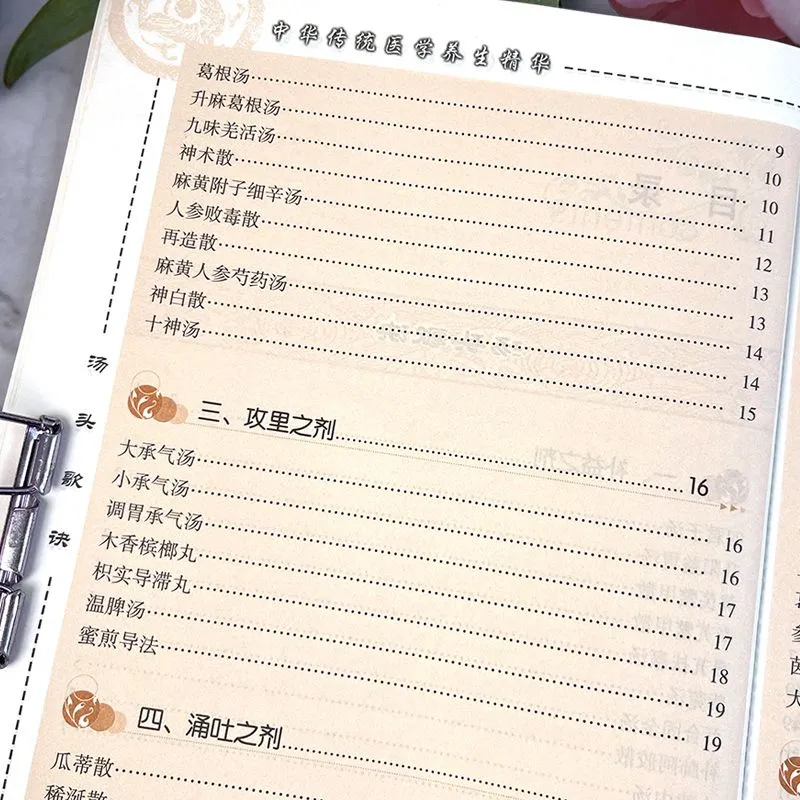 中华传统医学养生精华
葛根汤 9
升麻葛根汤 10
九味羌活汤 10
神术散 11
麻黄附子细辛汤 12
人参败毒散 13
再造散 13
麻黄人参芍药汤 14
神白散 14
十神汤 15
汤头歌诀
三、攻里之剂 16
大承气汤 16
小承气汤 16
调胃承气汤 17
木香槟榔丸 17
枳实导滞丸 18
温脾汤 19
蜜煎导法 19
四、涌吐之剂
瓜蒂散
稀涎散